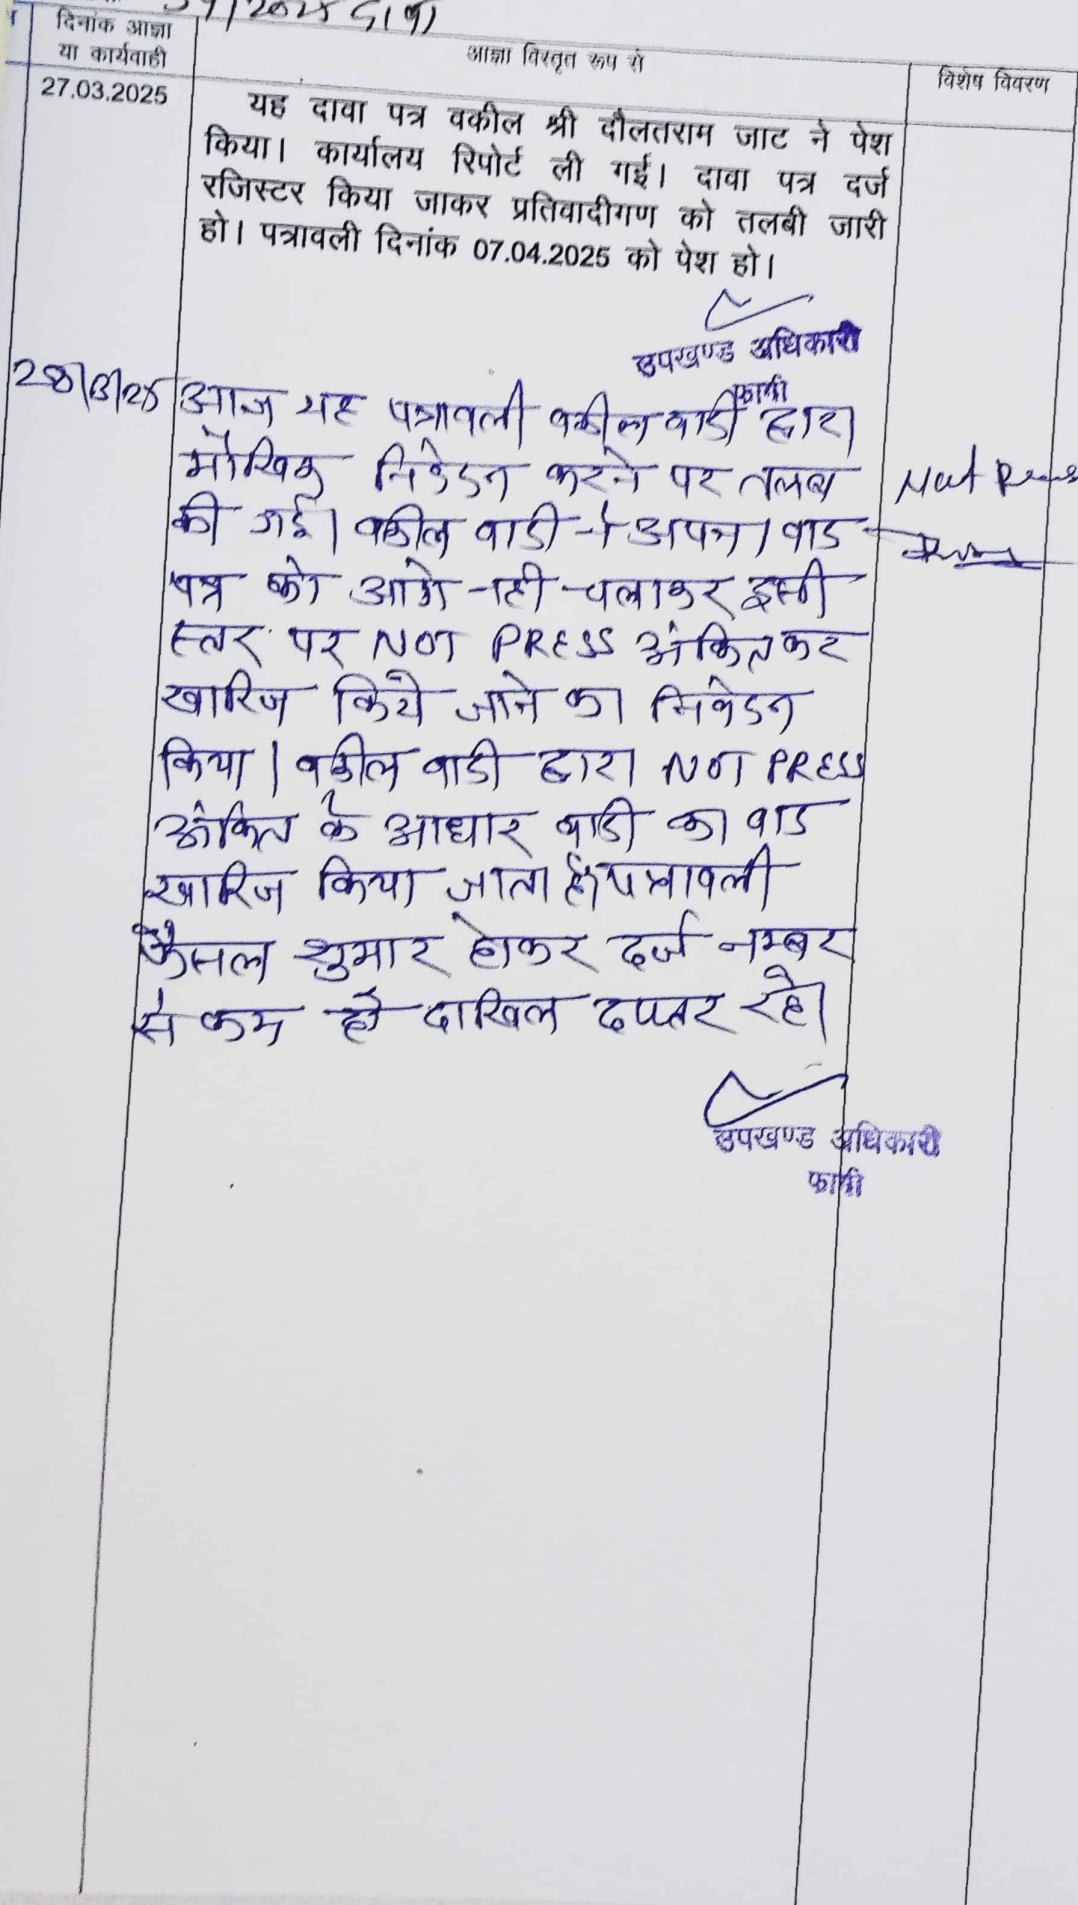 दिनांक आज्ञा
या कार्यवाही
आज्ञा विस्तृत रूप से
विशेष विवरण
27.03.2025
यह दावा पत्र वकील श्री दौलतराम जाट ने पेश
किया। कार्यालय रिपोर्ट ली गई। दावा पत्र दर्ज
रजिस्टर किया जाकर प्रतिवादीगण को तलबी जारी
हो। पत्रावली दिनांक 07.04.2025 को पेश हो।
उपखण्ड अधिकारी
फागी
28/3/25
आज यह पत्रावली वकील वादी द्वारा
मौखिक निवेदन करने पर तलब
की गई। वकील वादी ने अपना वाद
पत्र को आगे नही चलाकर इसी
स्तर पर NOT PRESS अंकित कर
खारिज किये जाने का निवेदन
किया। वकील वादी द्वारा NOT PRESS
अंकित के आधार वादी का वाद
खारिज किया जाता है। पत्रावली
फैसल शुमार होकर दर्ज नम्बर
से कम हो दाखिल दफ्तर रहे।
Not Press
उपखण्ड अधिकारी
फागी